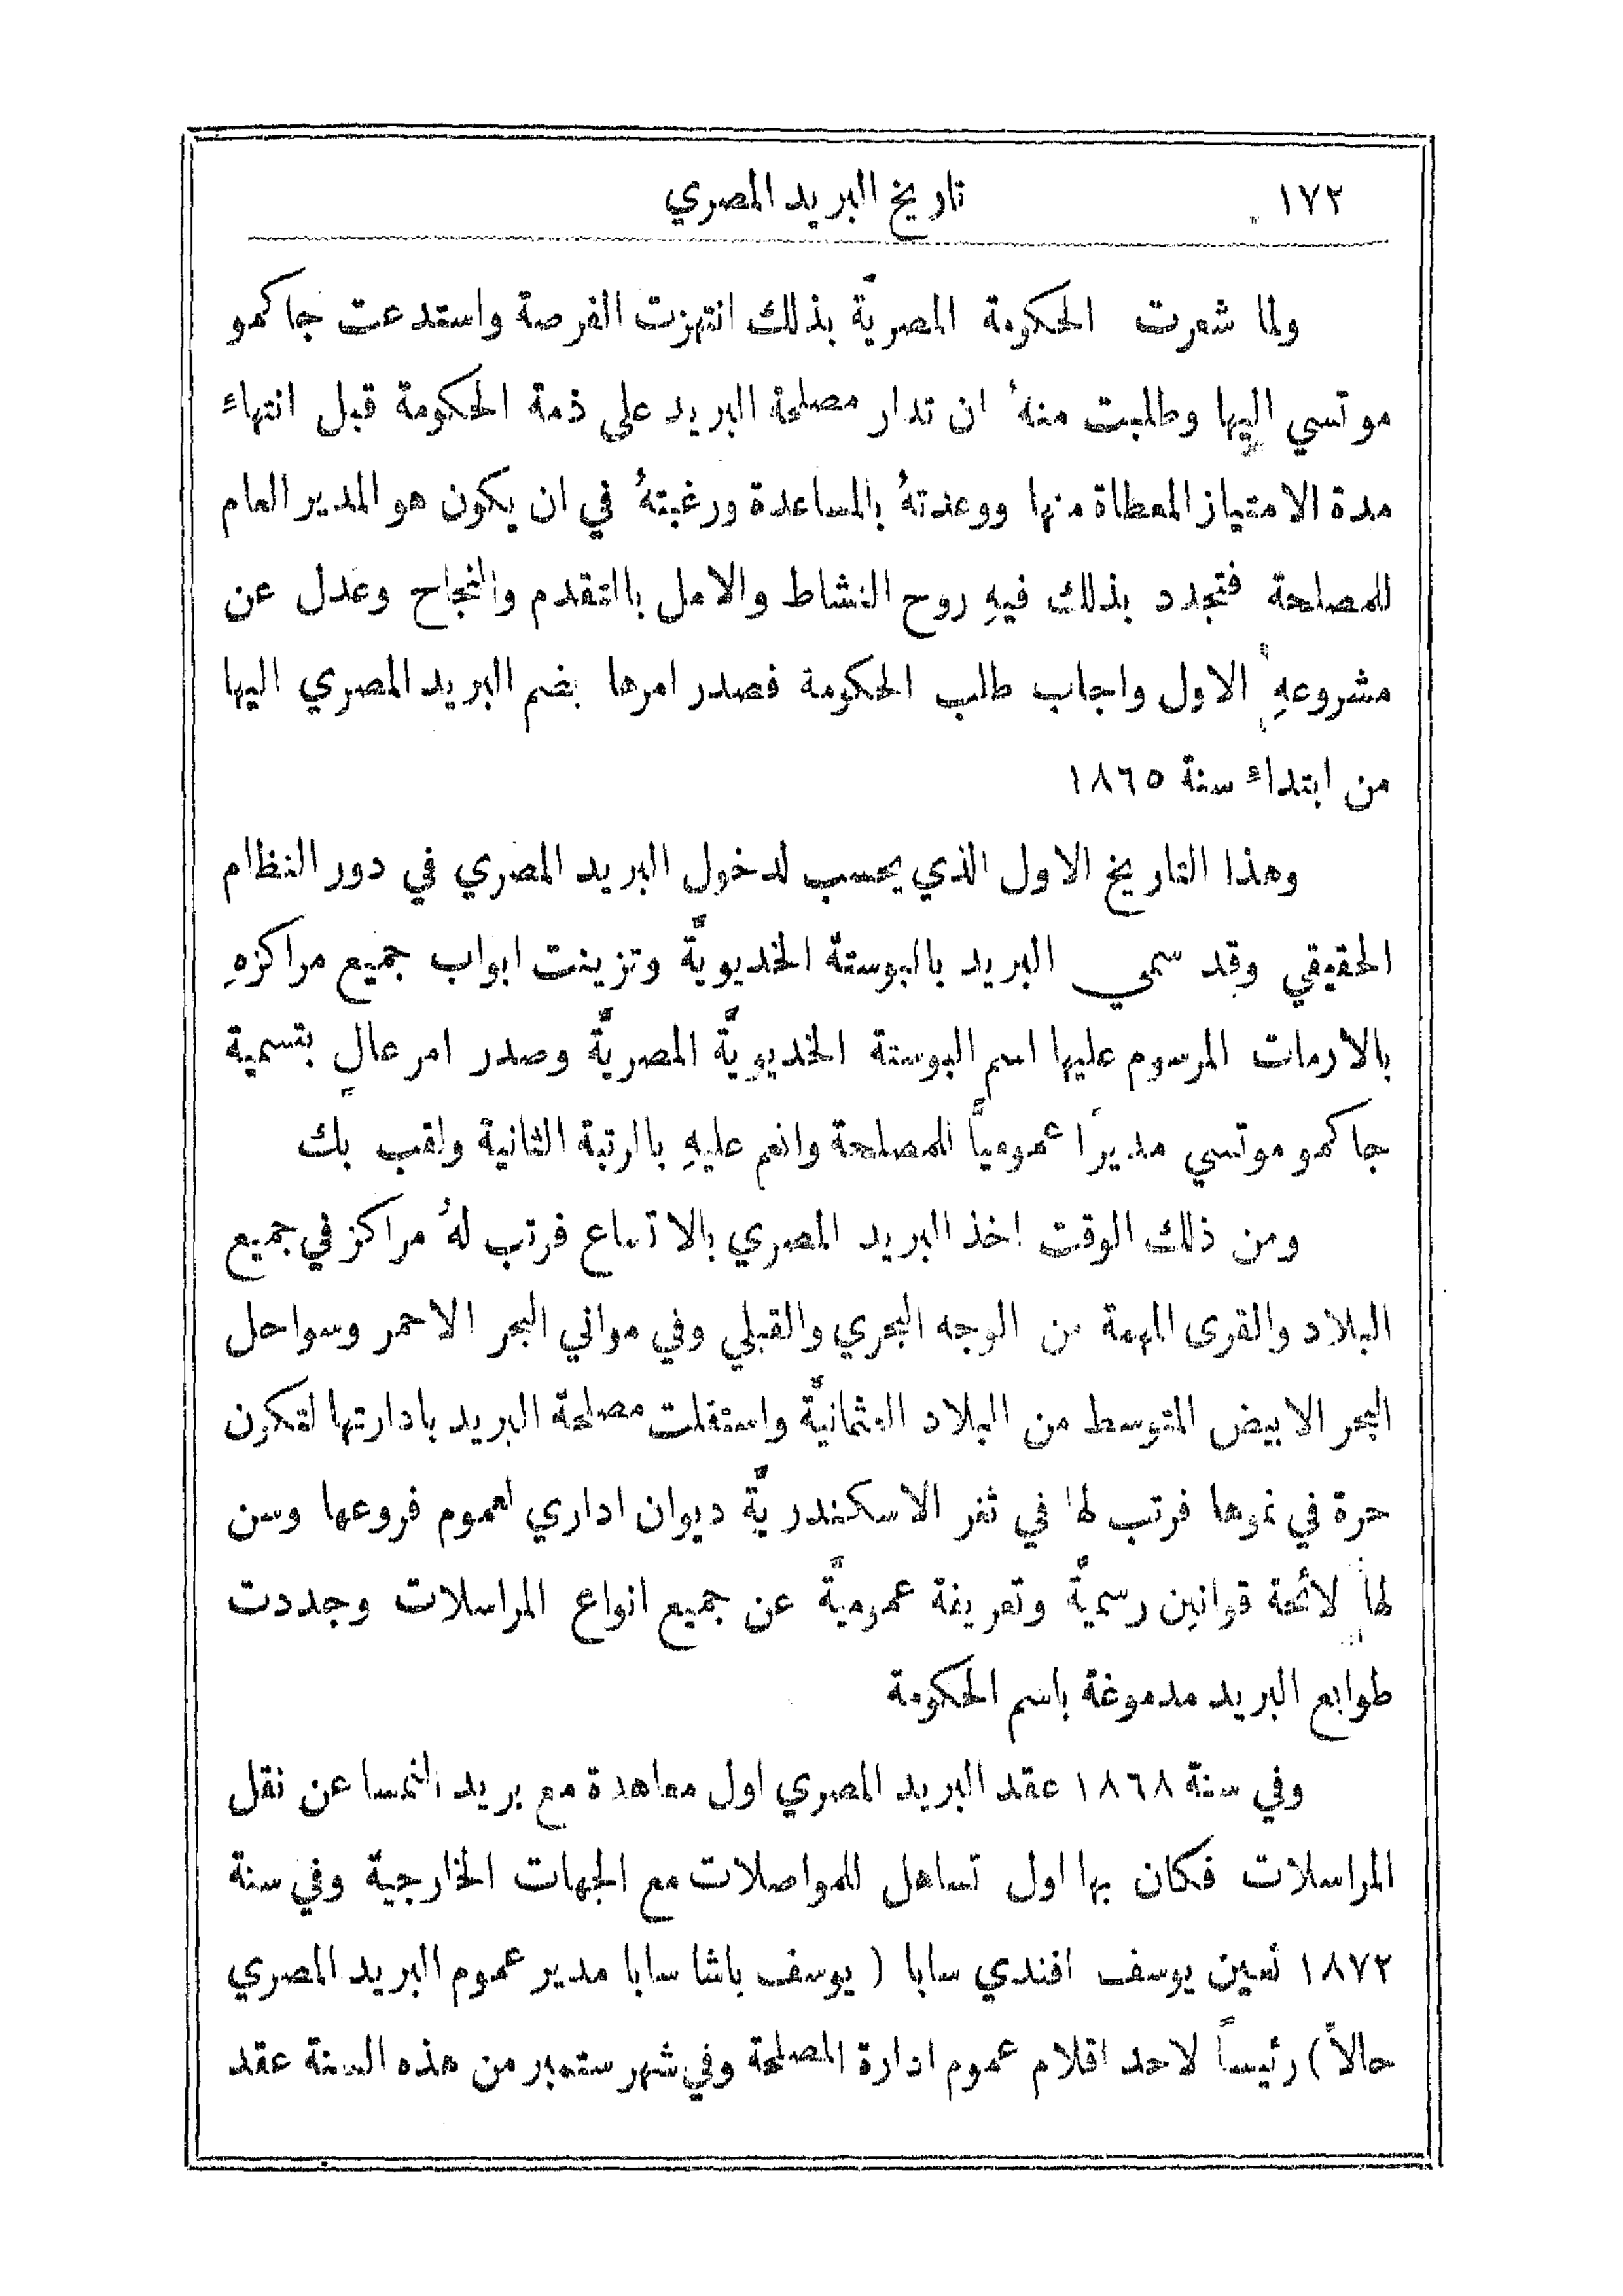 ١٧٢ تاريخ البريد المصري
ولما شعرت الحكومة المصريَّة بذلك انتهزت الفرصة واستدعت جاكمو
موتسي اليها وطلبت منهُ ان تدار مصلحة البريد على ذمة الحكومة قبل انتهاء
مدة الامتياز المعطاة منها ووعدتهُ بالمساعدة ورغبتهُ في ان يكون هو المدير العام
للمصلحة فتجدد بذلك فيهِ روح النشاط والامل بالتقدم والنجاح وعدل عن
مشروعهِ الاول واجاب طلب الحكومة فصدر امرها بضم البريد المصري اليها
من ابتداء سنة ١٨٦٥
وهذا التاريخ الاول الذي يحسب لدخول البريد المصري في دور النظام
الحقيقي وقد سمي البريد بالبوستة الخديويَّة وتزينت ابواب جميع مراكزهِ
بالارمات المرسوم عليها اسم البوستة الخديويَّة المصريَّة وصدر امر عالٍ بتسمية
جاكمو موتسي مديرًا عموميًّا للمصلحة وانعم عليهِ بالرتبة الثانية ولقب بك
ومن ذلك الوقت اخذ البريد المصري بالاتساع فرتب لهُ مراكز في جميع
البلاد والقرى المهمة من الوجه البحري والقبلي وفي مواني البحر الاحمر وسواحل
البحر الابيض المتوسط من البلاد العثمانيَّة واستقلت مصلحة البريد بادارتها لتكون
حرة في نموها فرتب لها في ثغر الاسكندريَّة ديوان اداري لعموم فروعها وسن
لها لائحة قوانين رسميَّة وتعريفة عموميَّة عن جميع انواع المراسلات وجددت
طوابع البريد مدموغة باسم الحكومة
وفي سنة ١٨٦٨ عقد البريد المصري اول معاهدة مع بريد النمسا عن نقل
المراسلات فكان بها اول تساهل للمواصلات مع الجهات الخارجية وفي سنة
١٨٧٢ تعين يوسف افندي سابا ( يوسف باشا سابا مدير عموم البريد المصري
حالاً ) رئيساً لاحد اقلام عموم ادارة المصلحة وفي شهر ستمبر من هذه السنة عقد